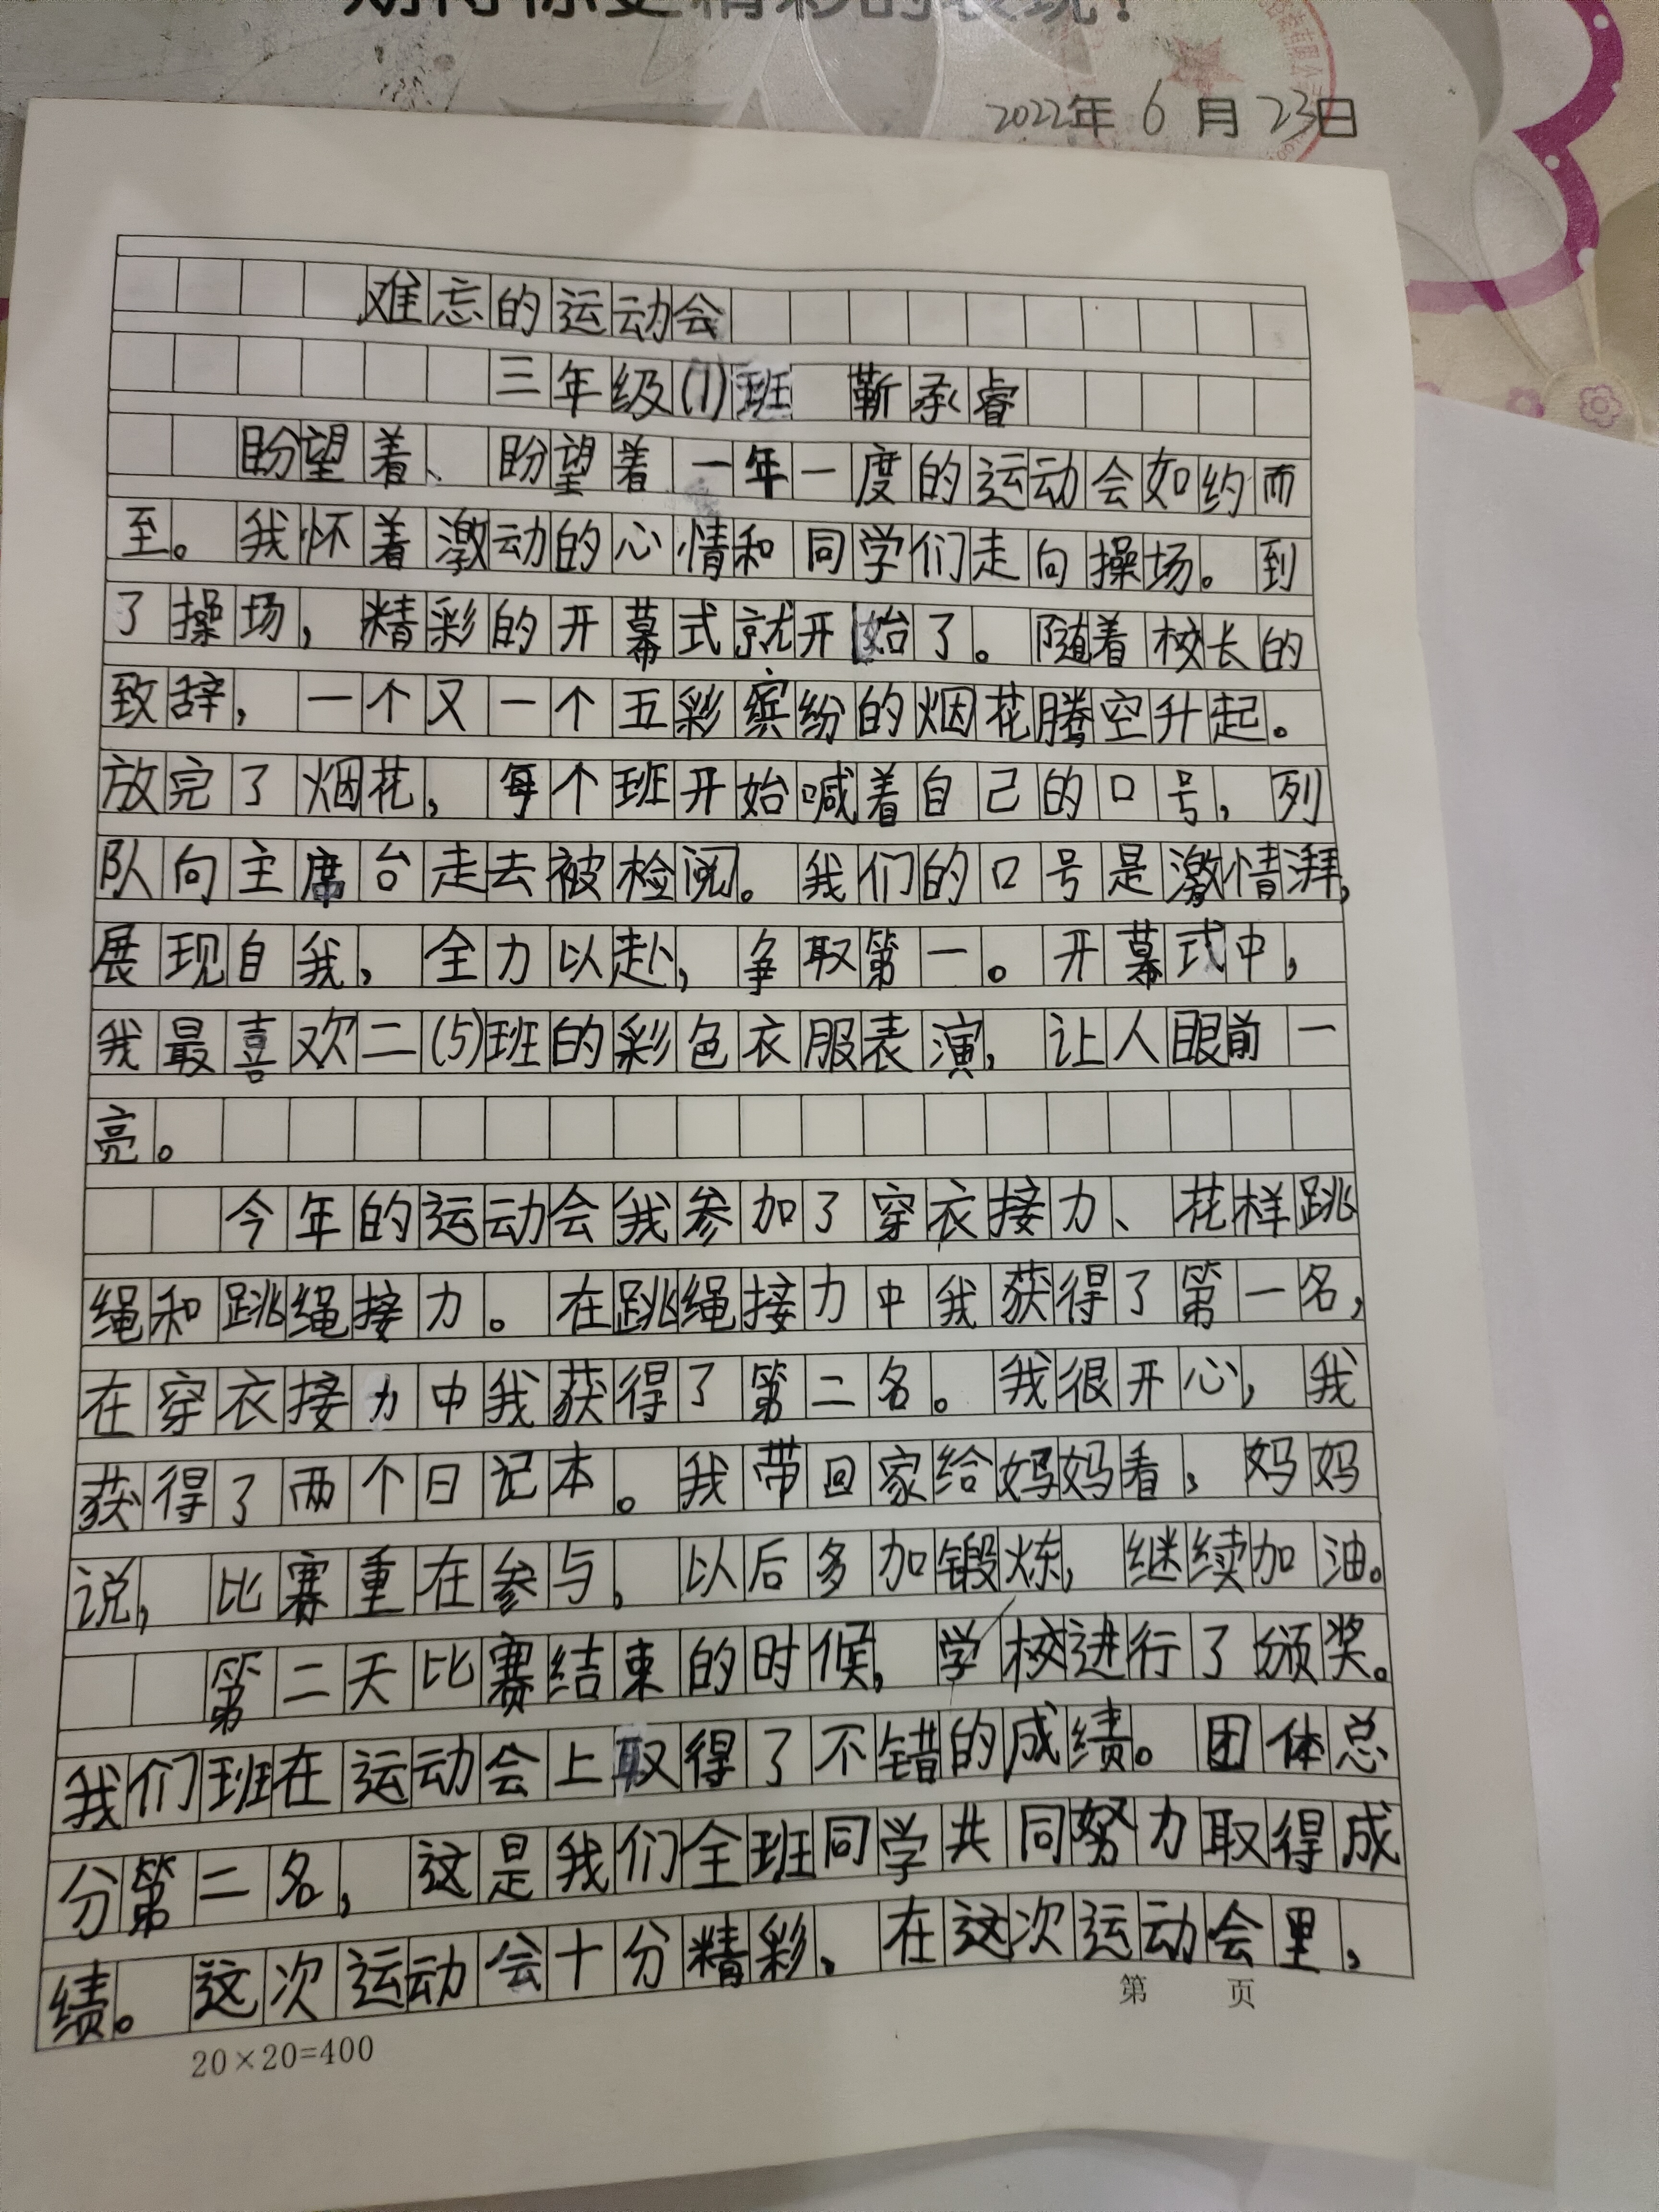 2022年 6 月 23日
难忘的运动会
三年级(1)班 靳承睿
盼望着、盼望着一年一度的运动会如约而
至。我怀着激动的心情和同学们走向操场。到
了操场，精彩的开幕式就开始了。随着校长的
致辞，一个又一个五彩缤纷的烟花腾空升起。
放完了烟花，每个班开始喊着自己的口号，列
队向主席台走去被检阅。我们的口号是激情湃，
展现自我，全力以赴，争取第一。开幕式中，
我最喜欢二(5)班的彩色衣服表演，让人眼前一
亮。
今年的运动会我参加了穿衣接力、花样跳
绳和跳绳接力。在跳绳接力中我获得了第一名，
在穿衣接力中我获得了第二名。我很开心，我
获得了两个日记本。我带回家给妈妈看，妈妈
说，比赛重在参与。以后多加锻炼，继续加油。
第二天比赛结束的时候，学校进行了颁奖。
我们班在运动会上取得了不错的成绩。团体总
分第二名，这是我们全班同学共同努力取得成
绩。这次运动会十分精彩、在这次运动会里，
第 页
20×20=400